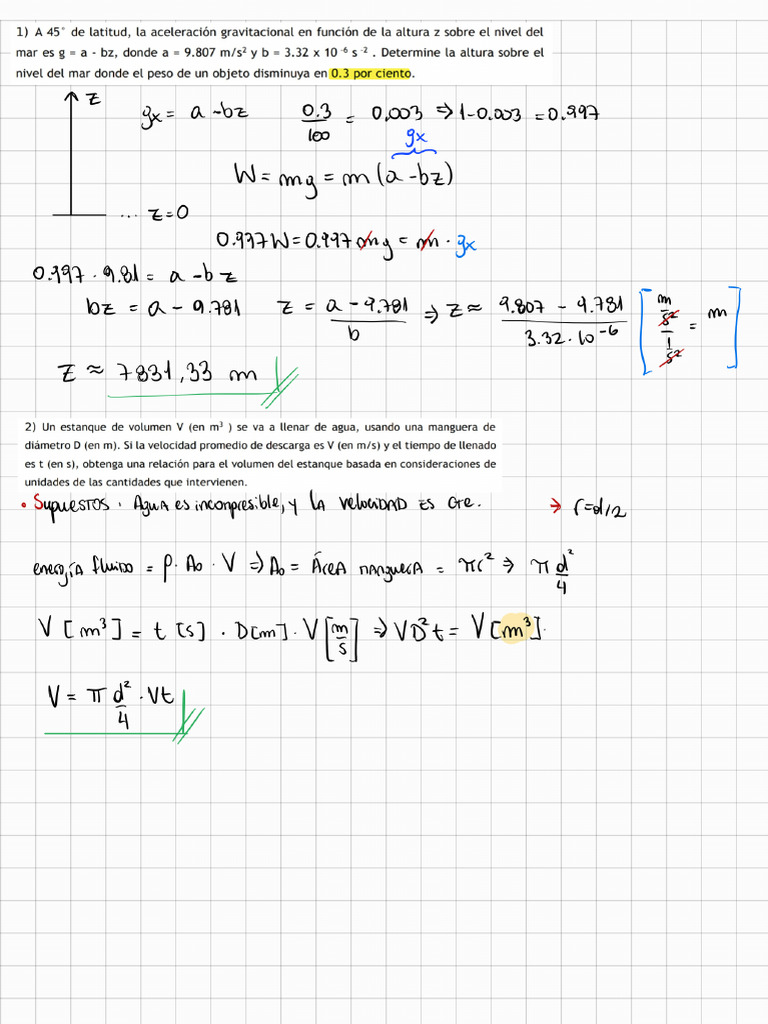 1) A 45° de latitud, la aceleración gravitacional en función de la altura z sobre el nivel del
mar es g = a - bz, donde a = 9.807 m/s² y b = 3.32 x 10 ⁻⁶ s ⁻² . Determine la altura sobre el
nivel del mar donde el peso de un objeto disminuya en 0.3 por ciento.
z
gx = a - bz
0.3/100 = 0,003 ⇒ 1-0.003 = 0.997
gx
W = mg = m (a - bz)
... z=0
0.997W = 0.997 mg = m · gx
0.997 · 9.81 = a - bz
bz = a - 9.781
z = (a - 9.781)/b ⇒ z ≈ (9.807 - 9.781)/(3.32·10⁻⁶) [(m/s²)/(1/s²) = m]
z ≈ 7831,33 m
2) Un estanque de volumen V (en m³ ) se va a llenar de agua, usando una manguera de
diámetro D (en m). Si la velocidad promedio de descarga es V (en m/s) y el tiempo de llenado
es t (en s), obtenga una relación para el volumen del estanque basada en consideraciones de
unidades de las cantidades que intervienen.
• Supuestos. Agua es inconpresible, y la velocidad es cte.
→ r=d/2
energía fluido = ρ · Ao · V ⇒ Ao = Área manguera = πr² ⇒ π d²/4
V [m³] = t [s] · D[m] · V [m/s] ⇒ VD²t = V [m³].
V = π d²/4 · Vt